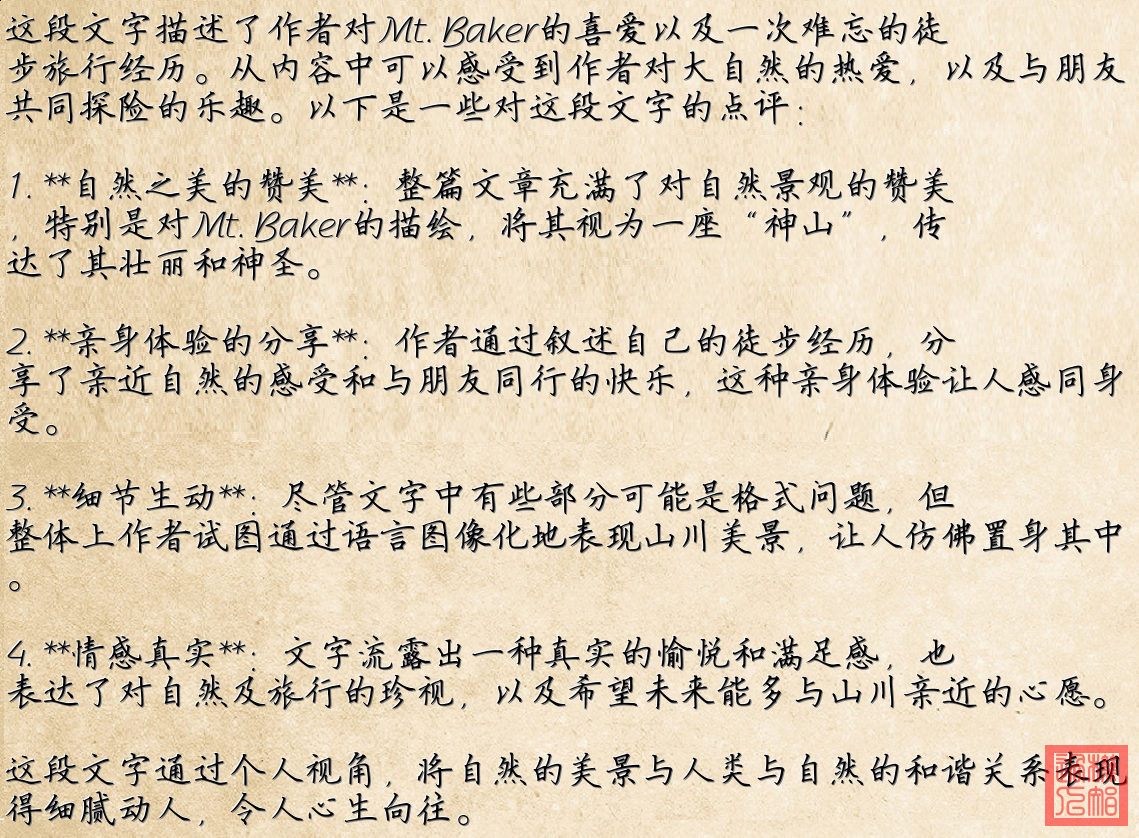 这段文字描述了作者对Mt. Baker的喜爱以及一次难忘的徒
步旅行经历。从内容中可以感受到作者对大自然的热爱，以及与朋友
共同探险的乐趣。以下是一些对这段文字的点评：
1. **自然之美的赞美**：整篇文章充满了对自然景观的赞美
，特别是对Mt. Baker的描绘，将其视为一座“神山”，传
达了其壮丽和神圣。
2. **亲身体验的分享**：作者通过叙述自己的徒步经历，分
享了亲近自然的感受和与朋友同行的快乐，这种亲身体验让人感同身
受。
3. **细节生动**：尽管文字中有些部分可能是格式问题，但
整体上作者试图通过语言图像化地表现山川美景，让人仿佛置身其中
。
4. **情感真实**：文字流露出一种真实的愉悦和满足感，也
表达了对自然及旅行的珍视，以及希望未来能多与山川亲近的心愿。
这段文字通过个人视角，将自然的美景与人类与自然的和谐关系表现
得细腻动人，令人心生向往。